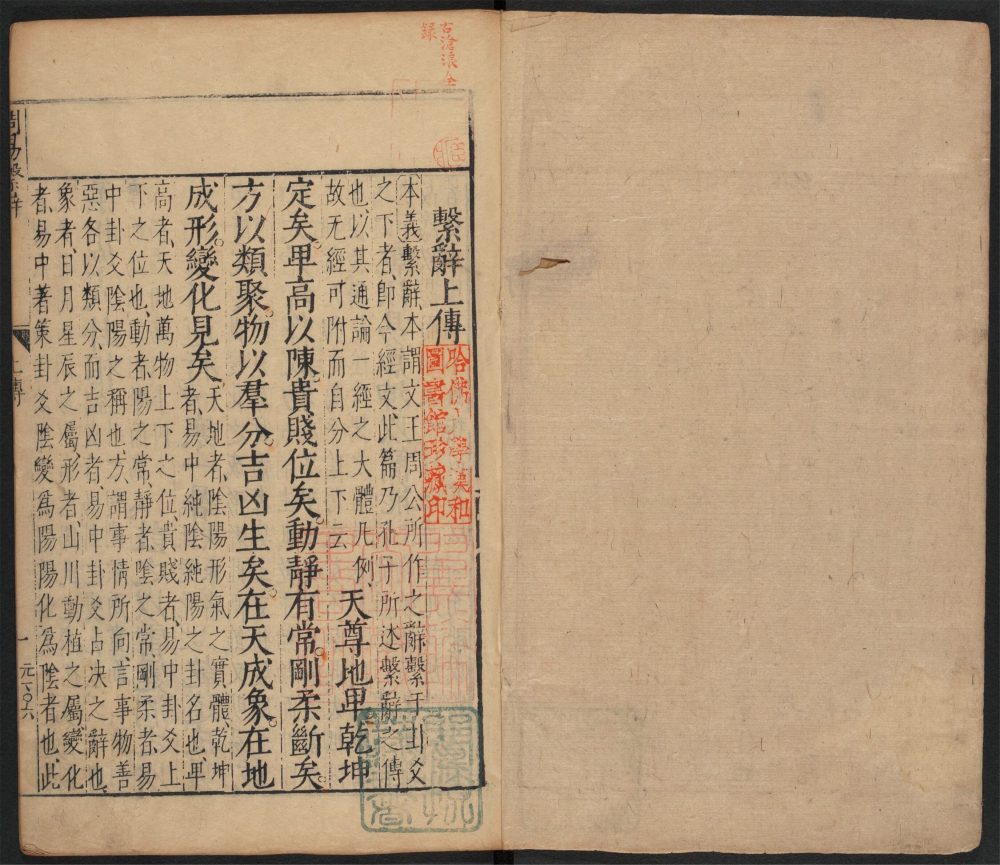 繫辭上傳
本義繫辭本謂文王周公所作之辭繫于卦爻
之下者、卽今經文、此篇乃孔子所述繫辭之傳
也、以其通論一經之大體凡例、
故无經可附而自分上下云
天尊地卑乾坤
定矣。卑高以陳、貴賤位矣。動靜有常、剛柔斷矣。
方以類聚、物以羣分、吉凶生矣。在天成象、在地
成形、變化見矣
天地者、陰陽形氣之實體、乾坤
者、易中純陰純陽之卦名也、卑
高者、天地萬物上下之位、貴賤者、易中卦爻上
下之位也、動者、陽之常、靜者、陰之常、剛柔者、易
中卦爻陰陽之稱也、方、謂事情所向、言事物善
惡各以類分、而吉凶者、易中卦爻占決之辭也、
象者、日月星辰之屬、形者、山川動植之屬、變化
者、易中蓍策卦爻陰變爲陽、陽化爲陰者也、此
周易繫辭
上傳
一
元一〇六
哈佛大學漢和
圖書館珍藏印
古滄浪
録